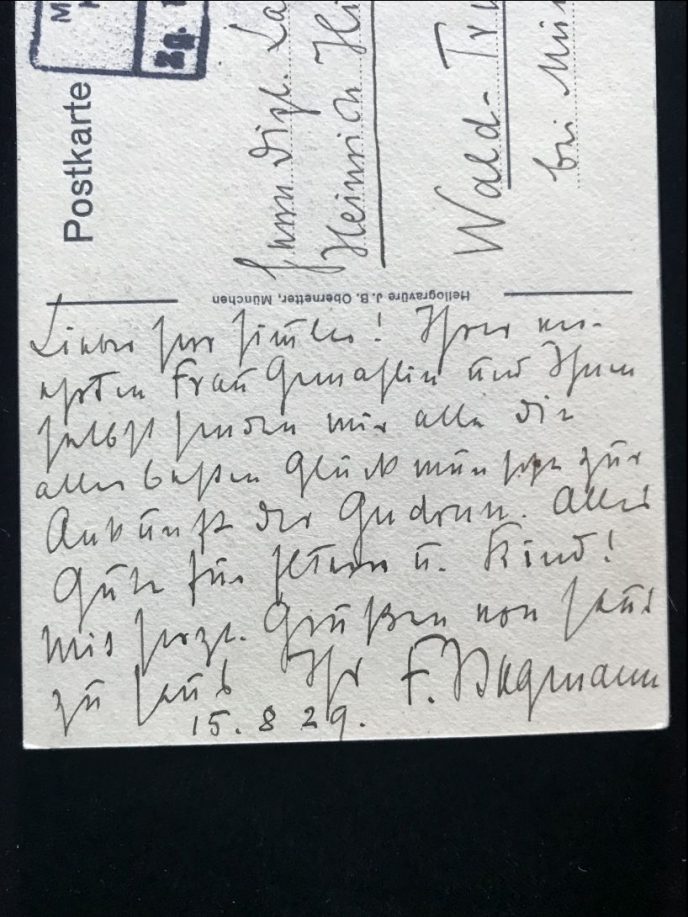 Postkarte
Zg.
Herrn Dipl. La
Heinrich Hi
Wald-Tru
bei Mün
Heliogravüre J. B. Obernetter, München
Lieber Herr Himmler! Ihrer ver-
ehrten Frau Gemahlin und Ihnen
selbst senden wir alle die
allerbesten Glückwünsche zur
Ankunft der Gudrun. Alles
Gute für Eltern u. Kind!
Mit herzl. Grüßen von Haus
zu Haus Ihr F.
15.8 29.